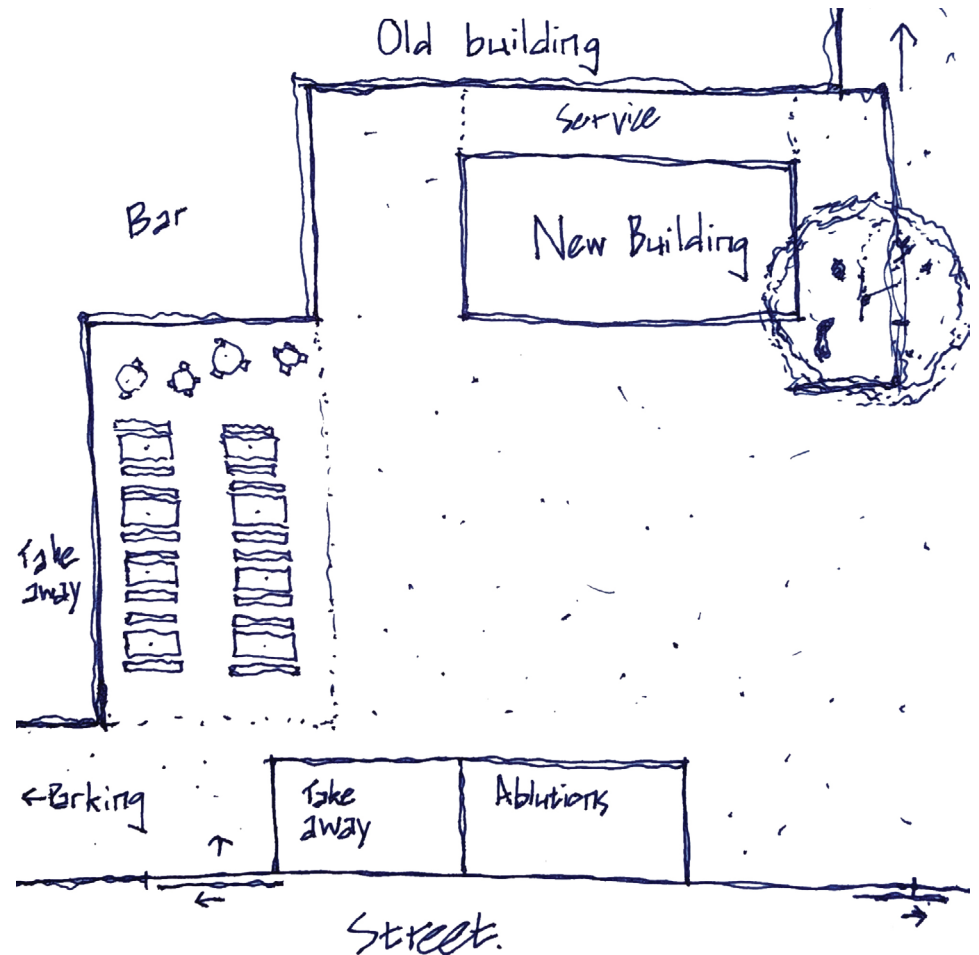 Old building
Service
Bar
New Building
Take
away
←Parking
Take
away
Ablutions
Street.